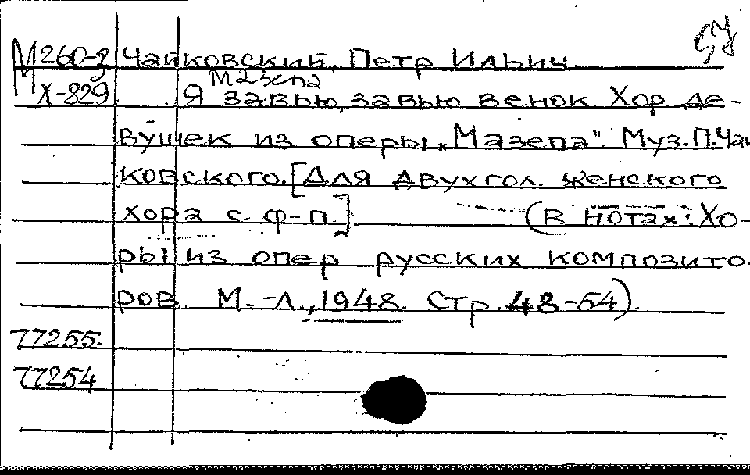 М260-2 Чайковский, Петр Ильич
Мазепа
М Х-829 Я завью, завью венок Хор де-
вушек из оперы „Мазепа". Муз. П. Чай
ковского. [Для двухгол. женского
хора с ф-п.] (В нотах: Хо-
ры из опер русских композито-
ров. М.-Л., 1948. Стр. 48-54).
77255.
77254